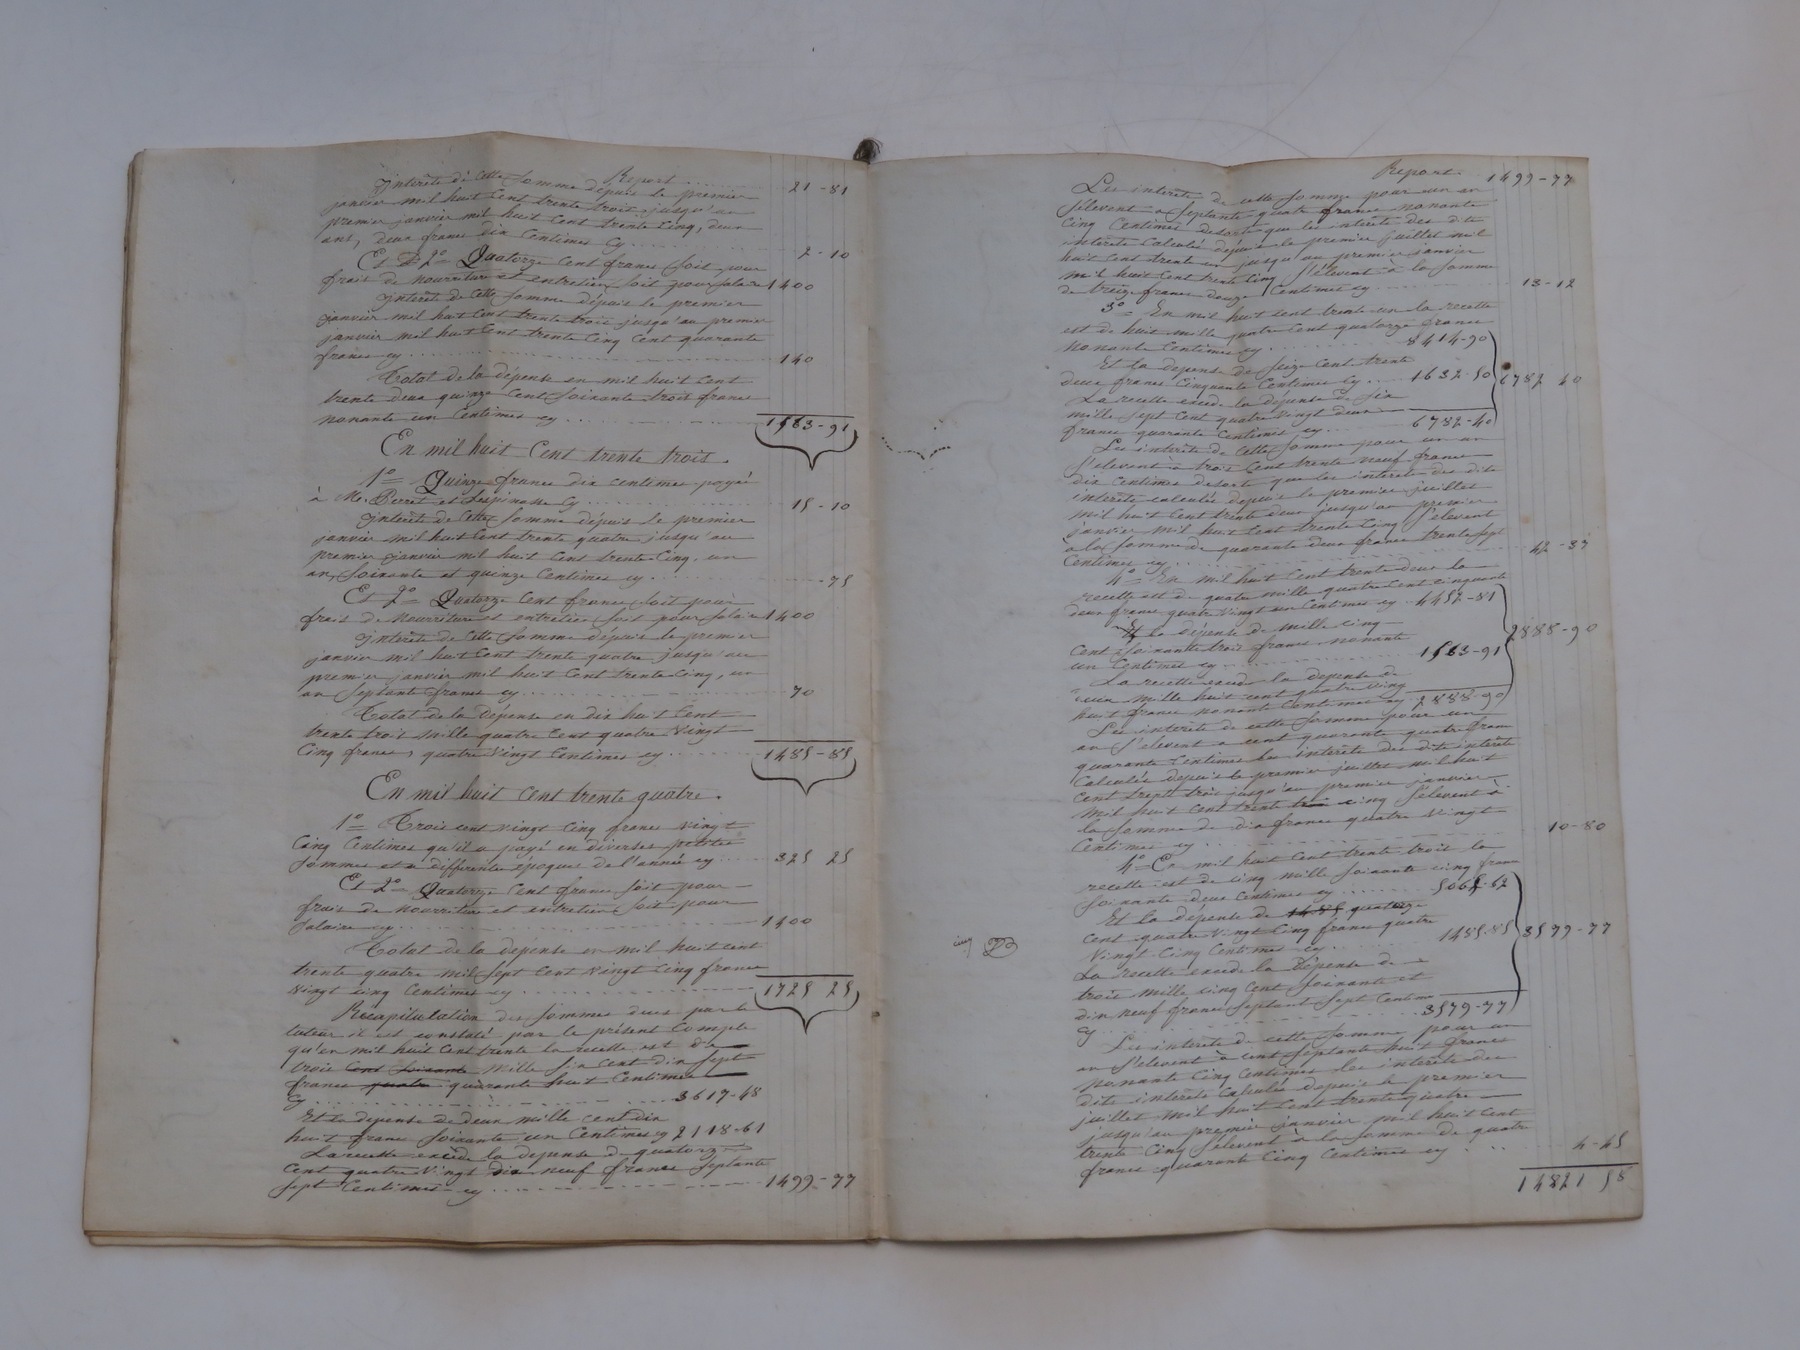 Report ........ 21-81
Intérêts de cette somme depuis le premier
janvier mil huit cent trente trois jusqu'au
premier janvier mil huit cent trente cinq, deux
ans, deux francs dix centimes cy ........ 2-10
Et 2° Quatorze cent francs soit pour
frais de nourriture et entretien soit pour salaire 1400
Intérêts de cette somme depuis le premier
janvier mil huit cent trente trois jusqu'au premier
janvier mil huit cent trente cinq cent quarante
francs cy ........ 140
Total de la dépense en mil huit cent
trente deux quinze cent soixante trois francs
nonante un centimes cy ........ 1563-91
En mil huit cent trente trois.
1° Quinze francs dix centimes payés
à M. Perret et Lespinasse cy ........ 15-10
Intérêts de cette somme depuis le premier
janvier mil huit cent trente quatre jusqu'au
premier janvier mil huit cent trente cinq, un
an, soixante et quinze centimes cy ........ -75
Et 2° Quatorze cent francs soit pour
frais de nourriture et entretien soit pour salaire 1400
Intérêts de cette somme depuis le premier
janvier mil huit cent trente quatre jusqu'au
premier janvier mil huit cent trente cinq, un
an septante francs cy ........ 70
Total de la dépense en dix huit cent
trente trois mille quatre cent quatre vingt
cinq francs, quatre vingt centimes cy ........ 1485-85
En mil huit cent trente quatre.
1° Trois cent vingt cinq francs vingt
cinq centimes qu'il a payé en diverses petites
sommes et a différentes époques de l'année cy ........ 325 25
Et 2° Quatorze cent francs soit pour
frais de nourriture et entretien soit pour
salaire cy ........ 1400
Total de la dépense en mil huit cent
trente quatre mil sept cent vingt cinq francs
vingt cinq centimes cy ........ 1725 25
Récapitulation des sommes dues par le
tuteur il est constaté par le présent compte
qu'en mil huit cent trente la recette est de
trois cent soixante mille six cent dix sept
francs quatre quarante huit centimes
cy ........ 3617-48
Et la dépense de deux mille cent dix
huit francs soixante un centimes cy 2118-61
La recette excède la dépense de quatorze
cent quatre vingt dix neuf francs septante
sept centimes cy ........ 1499-77
Report 1499-77
Les intérêts de cette somme pour un an
s'élevent a septante quatre francs nonante
cinq centimes desorte que les intérêts des dits
intérêts calculés depuis le premier juillet mil
huit cent trente un jusqu'au premier janvier
mil huit cent trente cinq s'élevent à la somme
de treize francs douze centimes cy ........ 13-12
3° En mil huit cent trente un la recette
est de huit mille quatre cent quatorze francs
nonante centimes cy ........ 8414-90
Et la dépense de seize cent trente
deux francs cinquante centimes cy .... 1632-50 6782 40
La recette excède la dépense de six
mille sept cent quatre vingt deux
francs quarante centimes cy .... 6782-40
Les intérêts de cette somme pour un an
s'élevent à trois cent trente neuf francs
dix centimes desorte que les intérêts des dits
intérêts calculés depuis le premier juillet
mil huit cent trente deux jusqu'au premier
janvier mil huit cent trente cinq s'élevent
à la somme de quarante deux francs trente sept
centimes cy ........ 42-37
4° En mil huit cent trente deux la
recette est de quatre mille quatre cent cinquante
deux francs quatre vingt un centimes cy .. 4452-81
Et la dépense de mille cinq
cent soixante trois francs nonante
un centimes cy ........ 1563-91 2888-90
La recette excède la dépense de
deux mille huit cent quatre vingt
huit francs nonante centimes cy 2888-90
Les intérêts de cette somme pour un
an s'élevent a cent quarante quatre francs
quarante centimes les intérêts des dits intérêts
calculés depuis le premier juillet mil huit
cent trente trois jusqu'au premier janvier
mil huit cent trente trois cinq s'élevent à
la somme de dix francs quatre vingt
centimes cy ........ 10-80
4° En mil huit cent trente trois la
recette est de cinq mille soixante cinq francs
soixante deux centimes cy ........ 5065-62
Et la dépense de 1485 quatorze
cent quatre vingt cinq francs quatre
vingt cinq centimes cy ........ 1485-85 3579-77
La recette excède la dépense de
trois mille cinq cent soixante et
dix neuf francs septante sept centimes
cy ........ 3579-77
Les intérêts de cette somme pour un
an s'élevent à cent septante huit francs
nonante cinq centimes les intérêts des
dits intérêts calculés depuis le premier
juillet mil huit cent trente quatre
jusqu'au premier janvier mil huit cent
trente cinq s'élevent à la somme de quatre
francs quarante cinq centimes cy .... 4-45
14821 58